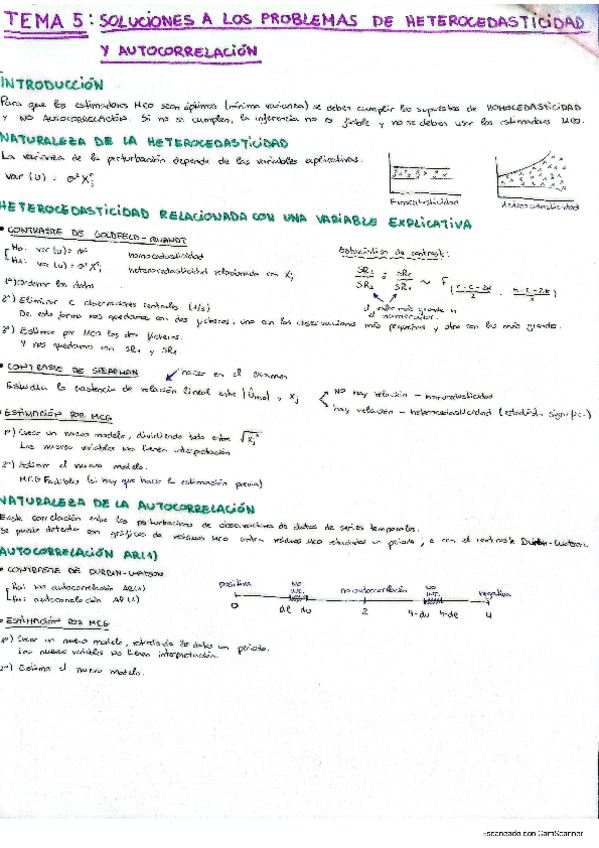 TEMA 5: SOLUCIONES A LOS PROBLEMAS DE HETEROCEDASTICIDAD
Y AUTOCORRELACIÓN
INTRODUCCIÓN
Para que los estimadores MCO sean óptimos (mínima varianza) se deben cumplir los supuestos de HOMOCEDASTICIDAD
y NO AUTOCORRELACIÓN. Si no se cumplen, la inferencia no es fiable y no se deben usar los estimadores MCO.
NATURALEZA DE LA HETEROCEDASTICIDAD
La varianza de la perturbación depende de las variables explicativas.
var (u) = σ² Xj
Homocedasticidad
Heterocedasticidad
HETEROCEDASTICIDAD RELACIONADA CON UNA VARIABLE EXPLICATIVA
• CONTRASTE DE GOLDFELD-QUANDT
Ho: var (u) = σ² homocedasticidad
Ha: var (u) = σ² Xj heterocedasticidad relacionada con Xj
Estadístico de contraste:
SR2 / SR1 ó SR1 / SR2 ~ F (n-c-2k / 2, n-c-2k / 2)
el valor más grande en
el numerador.
1º) Ordenar los datos
2º) Eliminar c observaciones centrales (1/3)
De esta forma nos quedamos con dos ficheros, uno con las observaciones más pequeñas y otro con las más grandes.
3º) Estimar por MCO los dos ficheros.
Y nos quedamos con SR1 y SR2.
• CONTRASTE DE SPEARMAN
hacer en el examen
Estudia la existencia de relación lineal entre |Ûmco| y Xj
NO hay relación - homocedasticidad
hay relación - heterocedasticidad (estadíst. signific.)
• ESTIMACIÓN POR MCG
1º) Crear un nuevo modelo, dividiendo todo entre
Las nuevas variables no tienen interpretación
2º) Estimar el nuevo modelo.
MCG Factibles (si hay que hacer la estimación previa)
NATURALEZA DE LA AUTOCORRELACIÓN
Existe correlación entre las perturbaciones de observaciones de datos de series temporales.
Se puede detectar con gráficos de residuos MCO contra residuos MCO retardados un periodo, o con el contraste Durbin-Watson.
AUTOCORRELACIÓN AR(1)
• CONTRASTE DE DURBIN-WATSON
Ho: no autocorrelación AR(1)
Ha: autocorrelación AR(1)
positiva NO INT. no autocorrelación NO INT. negativa
0 dl du 2 4-du 4-dl 4
• ESTIMACIÓN POR MCG
1º) Crear un nuevo modelo, retardando los datos un periodo.
Las nuevas variables no tienen interpretación.
2º) Estimar el nuevo modelo.
Escaneado con CamScanner